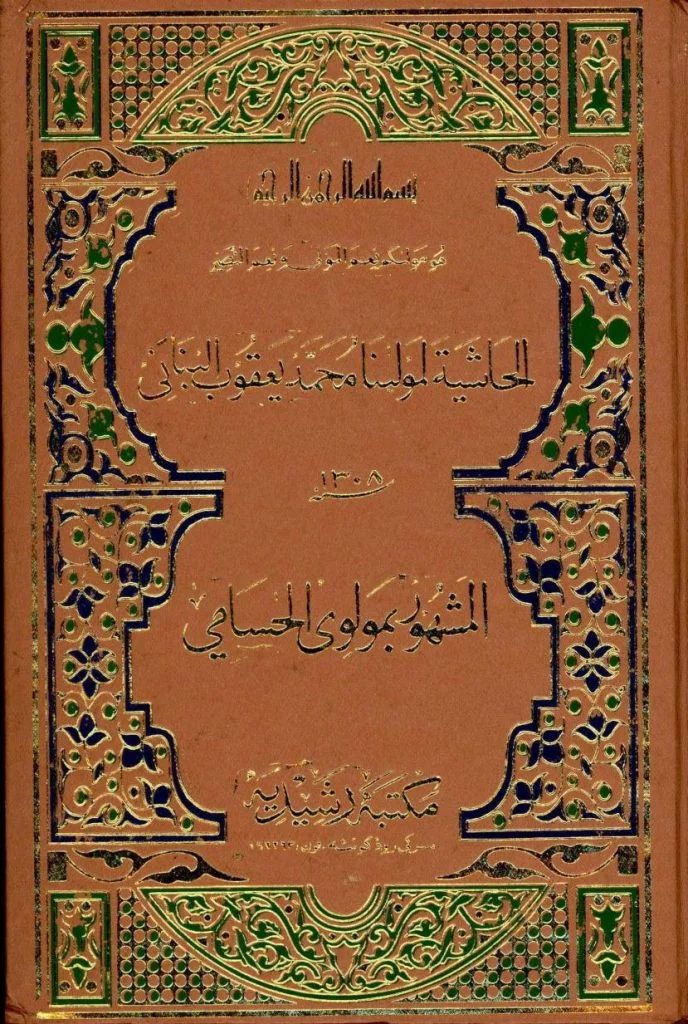 بسم الله الرحمن الرحيم
هو مولىكم نعم المولى ونعم النصير
الحاشية لمولىنا محمد يعقوب البناني
سنه ١٣٠٨
المشهور بمولوى الحسامي
مكتبة رشيديه
سركى روڈ كوئٹه